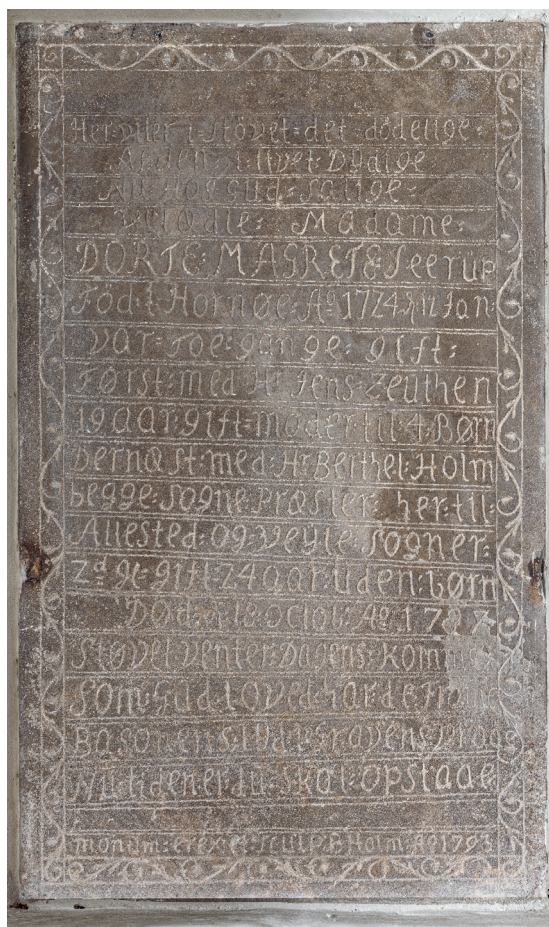 Her hviler i Støvet: det dödelige:
Af den i livet Dydige
Nu Hos Gud: Salige:
Velædle: Madame:
DORTE: MAGRETE Seerup
Föd: i Hornøe: Aº 1724 d. 12 Jan
var: toe: gange: gift:
Først: med Hr Jens: Zeuthen
19 aar: gift: moder: til: 4: Børn
Dernæst: med: Hr Berthel: Holm
begge: Sogne Præster: her: til:
Allested: og: Veyle: Sogner:
2d g: gift: 24 aar: uden: børn
Død: octob: Aº 17
Støvet venter: Dagens: Komm
Som: Gud: Loved: har: de
Basonens: lyd: gravens
Nu: tiden: er: du: skal: opstaae:
monum: erex: et: sculp: B Holm: Aº 1793